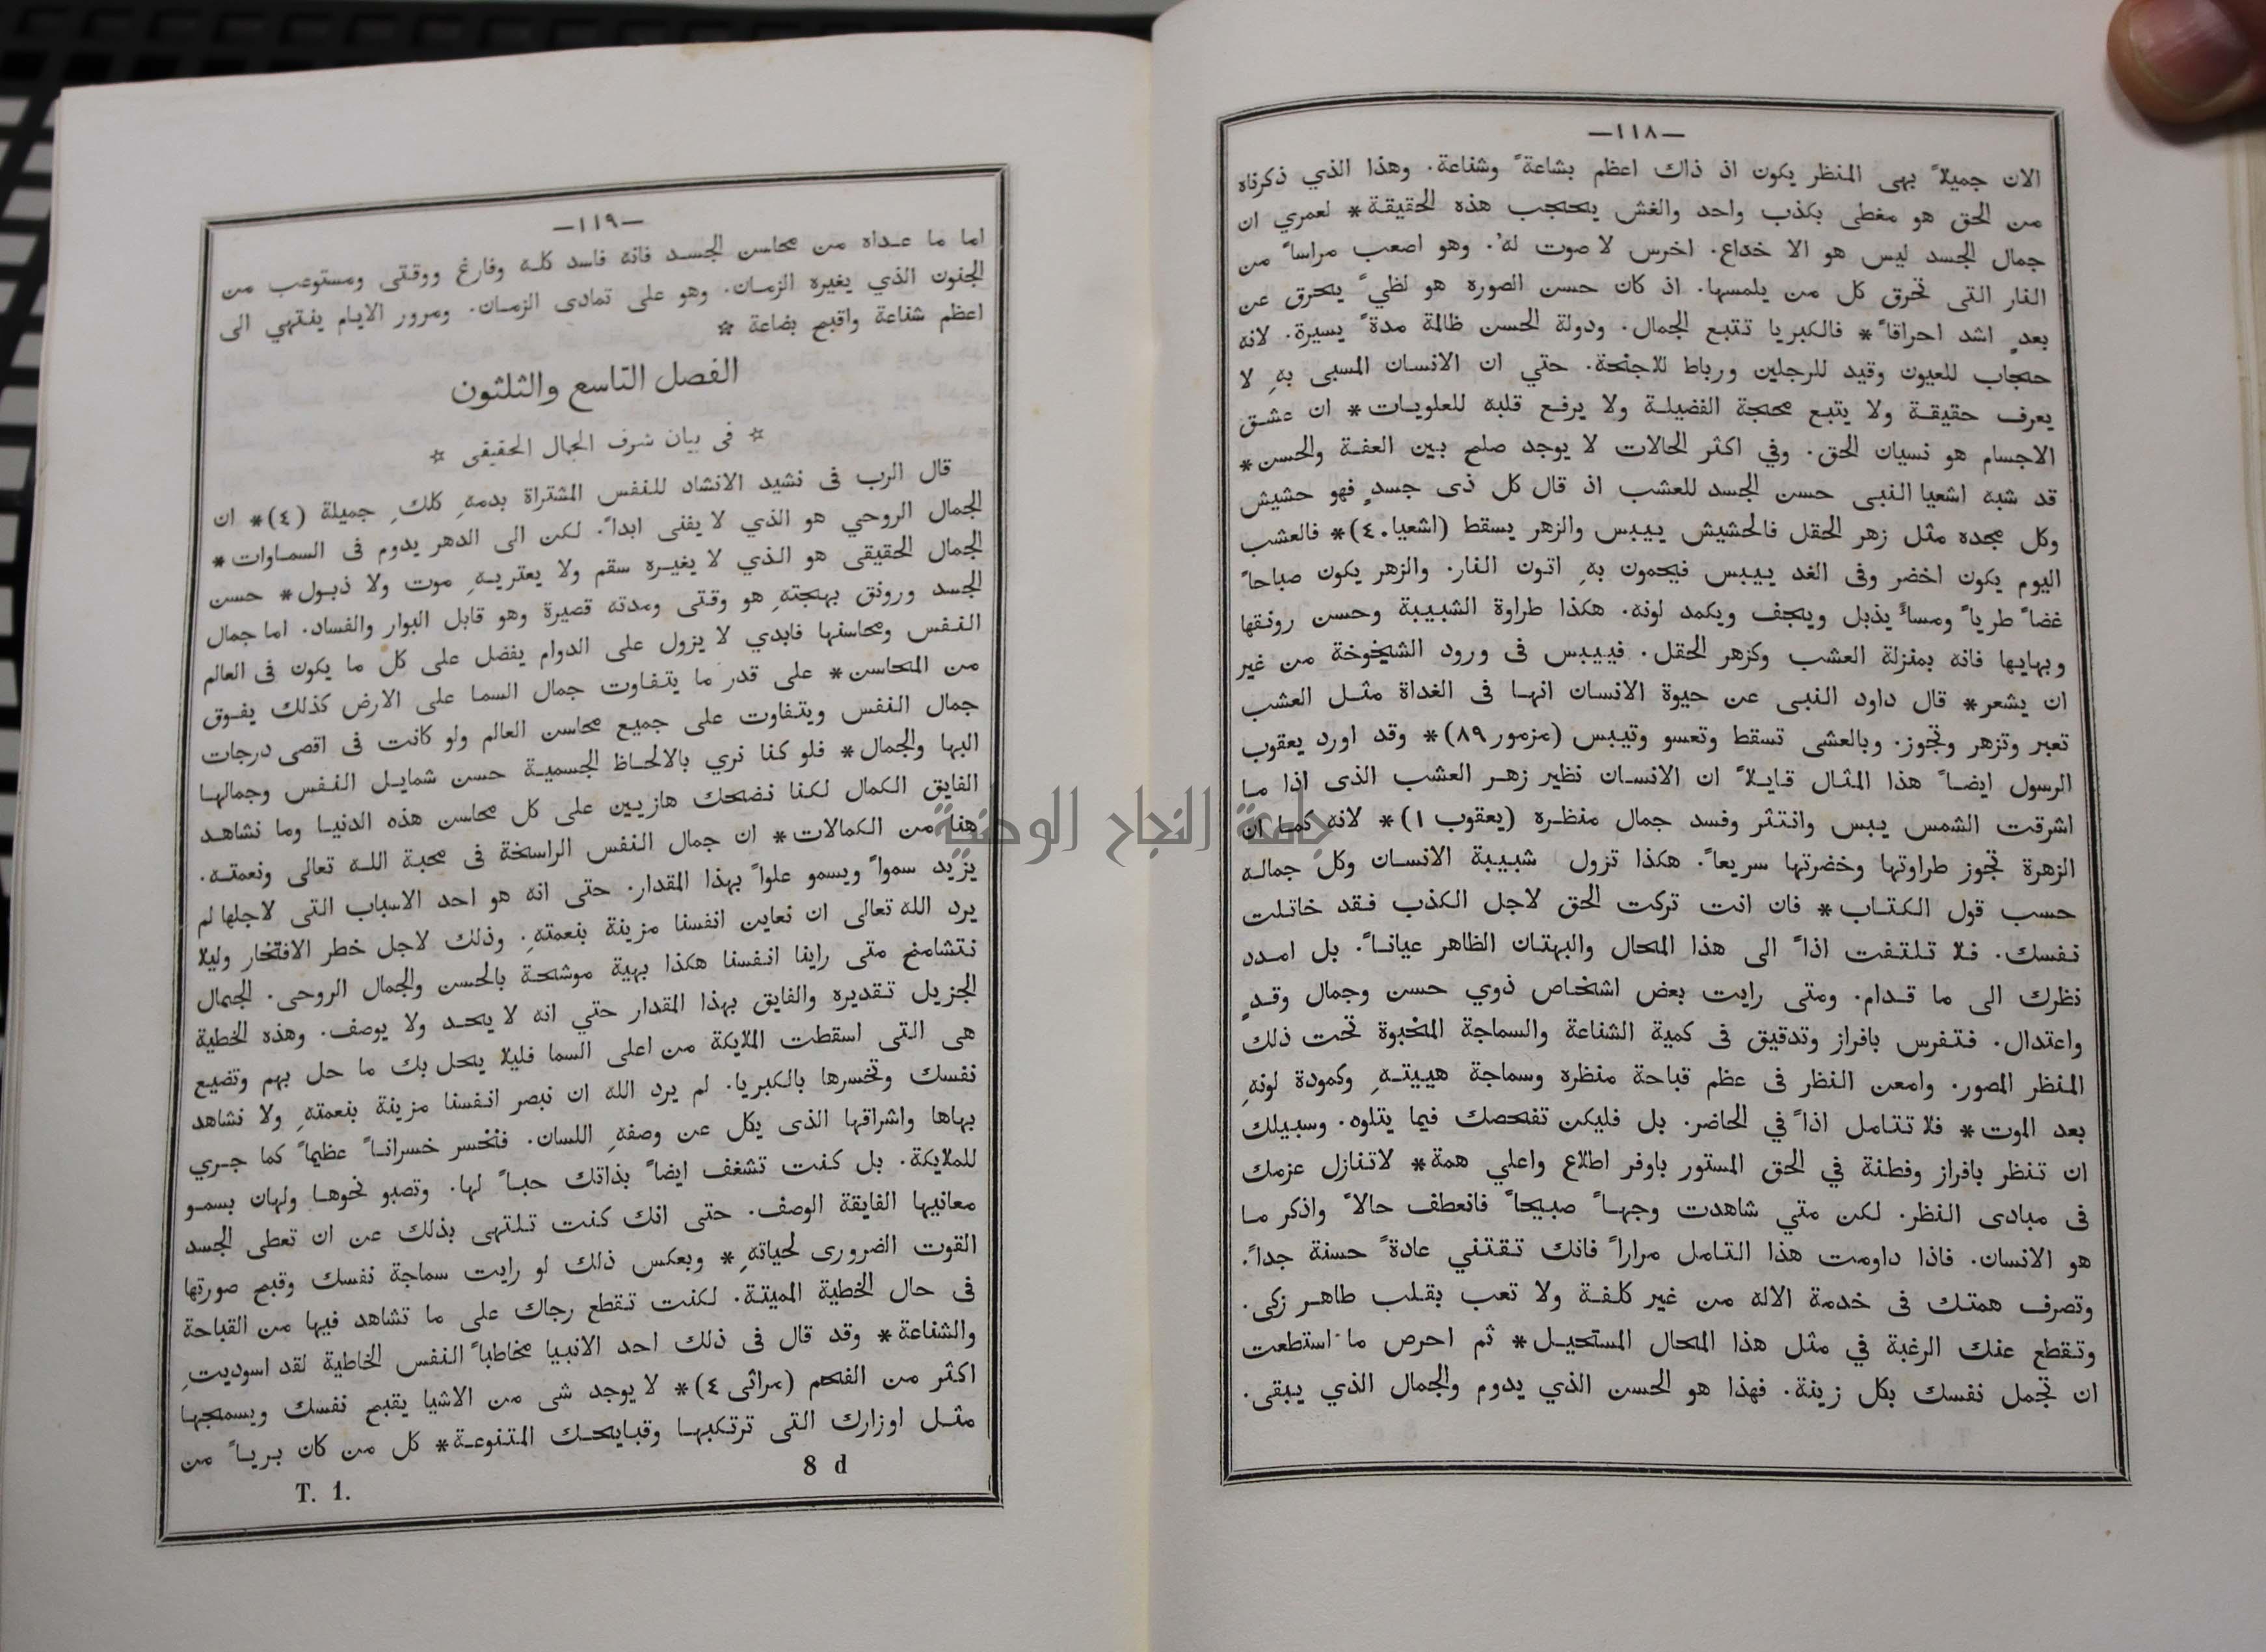 —١١٨—
الان جميلاً بهى المنظر يكون اذ ذاك اعظم بشاعةً وشناعة. وهذا الذي ذكرناه
من الحق هو مغطى بكذب واحد والغش يحتجب هذه الحقيقة* لعمري ان
جمال الجسد ليس هو الا خداع. اخرس لا صوت لهُ. وهو اصعب مراساً من
النار التى تحرق كل من يلمسها. اذ كان حسن الصورة هو لظيً يحرق عن
بعدٍ اشد احراقاً* فالكبريا تتبع الجمال. ودولة الحسن ظالمة مدةً يسيرة. لانه
حجاب للعيون وقيد للرجلين ورباط للاجنحة. حتي ان الانسان المسبى بهِ لا
يعرف حقيقة ولا يتبع محجة الفضيلة ولا يرفع قلبه للعلويات* ان عشق
الاجسام هو نسيان الحق. وفي اكثر الحالات لا يوجد صلح بين العفة والحسن*
قد شبه اشعيا النبى حسن الجسد للعشب اذ قال كل ذى جسدٍ فهو حشيش
وكل مجده مثل زهر الحقل فالحشيش ييبس والزهر يسقط (اشعيا.٤)* فالعشب
اليوم يكون اخضر وفى الغد ييبس فيحمون بهِ اتون النار. والزهر يكون صباحاً
غضاً طرياً ومساً يذبل ويجف ويكمد لونه. هكذا طراوة الشبيبة وحسن رونقها
وبهايها فانه بمنزلة العشب وكزهر الحقل. فييبس فى ورود الشيخوخة من غير
ان يشعر* قال داود النبى عن حيوة الانسان انها فى الغداة مثل العشب
تعبر وتزهر وتجوز. وبالعشى تسقط وتعسو وتيبس (مزمور ٨٩)* وقد اورد يعقوب
الرسول ايضاً هذا المثال قايلاً ان الانسان نظير زهر العشب الذى اذا ما
اشرقت الشمس يبس وانتثر وفسد جمال منظره (يعقوب ١)* لانه كما ان
الزهرة تجوز طراوتها وخضرتها سريعاً. هكذا تزول شبيبة الانسان وكل جماله
حسب قول الكتاب* فان انت تركت الحق لاجل الكذب فقد خاتلت
نفسك. فلا تلتفت اذاً الى هذا المحال والبهتان الظاهر عياناً. بل امدد
نظرك الى ما قدام. ومتى رايت بعض اشخاص ذوي حسن وجمال وقدٍ
واعتدال. فتفرس بافراز وتدقيق فى كمية الشناعة والسماجة المخبوة تحت ذلك
المنظر المصور. وامعن النظر فى عظم قباحة منظره وسماجة هييتهِ وكمودة لونهِ
بعد الموت* فلا تتامل اذاً في الحاضر. بل فليكن تفحصك فيما يتلوه. وسبيلك
ان تنظر بافراز وفطنة في الحق المستور باوفر اطلاع واعلي همة* لاتنازل عزمك
فى مبادى النظر. لكن متي شاهدت وجهاً صبيحاً فانعطف حالاً واذكر ما
هو الانسان. فاذا داومت هذا التامل مراراً فانك تقتني عادةً حسنة جداً.
وتصرف همتك فى خدمة الاله من غير كلفة ولا تعب بقلب طاهر زكى.
وتقطع عنك الرغبة في مثل هذا المحال المستحيل* ثم احرص ما استطعت
ان تجمل نفسك بكل زينة. فهذا هو الحسن الذي يدوم والجمال الذي يبقى.
—١١٩—
اما ما عداه من محاسن الجسد فانه فاسد كله وفارغ ووقتى ومستوعب من
الجنون الذي يغيره الزمان. وهو على تمادى الزمان. ومرور الايام ينتهي الى
اعظم شناعة واقبح بضاعة ☆
الفصل التاسع والثلثون
☆ فى بيان شرف الجمال الحقيقى ☆
قال الرب فى نشيد الانشاد للنفس المشتراة بدمهِ كلكِ جميلة (٤)* ان
الجمال الروحي هو الذي لا يفنى ابداً. لكن الى الدهر يدوم فى السماوات*
الجمال الحقيقى هو الذي لا يغيره سقم ولا يعتريهِ موت ولا ذبول* حسن
الجسد ورونق بهجتهِ هو وقتى ومدته قصيرة وهو قابل البوار والفساد. اما جمال
النفس ومحاسنها فابدي لا يزول على الدوام يفضل على كل ما يكون فى العالم
من المحاسن* على قدر ما يتفاوت جمال السما على الارض كذلك يفوق
جمال النفس ويتفاوت على جميع محاسن العالم ولو كانت فى اقصى درجات
البها والجمال* فلو كنا نري بالالحاظ الجسمية حسن شمايل النفس وجمالها
الفايق الكمال لكنا نضحك هازيين على كل محاسن هذه الدنيا وما نشاهد
هنا من الكمالات* ان جمال النفس الراسخة فى محبة الله تعالى ونعمته.
يزيد سمواً ويسمو علواً بهذا المقدار. حتى انه هو احد الاسباب التى لاجلها لم
يرد الله تعالى ان نعاين انفسنا مزينة بنعمتهِ. وذلك لاجل خطر الافتخار وليلا
نتشامخ متى راينا انفسنا هكذا بهية موشحة بالحسن والجمال الروحى. الجمال
الجزيل تقديره والفايق بهذا المقدار حتي انه لا يحد ولا يوصف. وهذه الخطية
هى التى اسقطت الملايكة من اعلى السما فليلا يحل بك ما حل بهم وتضيع
نفسك وتخسرها بالكبريا. لم يرد الله ان نبصر انفسنا مزينة بنعمتهِ ولا نشاهد
بهاها واشراقها الذى يكل عن وصفهِ اللسان. فنخسر خسراناً عظيماً كما جري
للملايكة. بل كنت تشغف ايضاً بذاتك حباً لها. وتصبو نحوها ولهان بسمو
معانيها الفايقة الوصف. حتى انك كنت تلتهى بذلك عن ان تعطى الجسد
القوت الضرورى لحياتهِ* وبعكس ذلك لو رايت سماجة نفسك وقبح صورتها
فى حال الخطية المميتة. لكنت تقطع رجاك على ما تشاهد فيها من القباحة
والشناعة* وقد قال فى ذلك احد الانبيا مخاطباً النفس الخاطية لقد اسوديتِ
اكثر من الفحم (مراثى ٤)* لا يوجد شى من الاشيا يقبح نفسك ويسمجها
مثل اوزارك التى ترتكبها وقبايحك المتنوعة* كل من كان برياً من
8 d
T. 1.
جامعة النجاح الوطنية